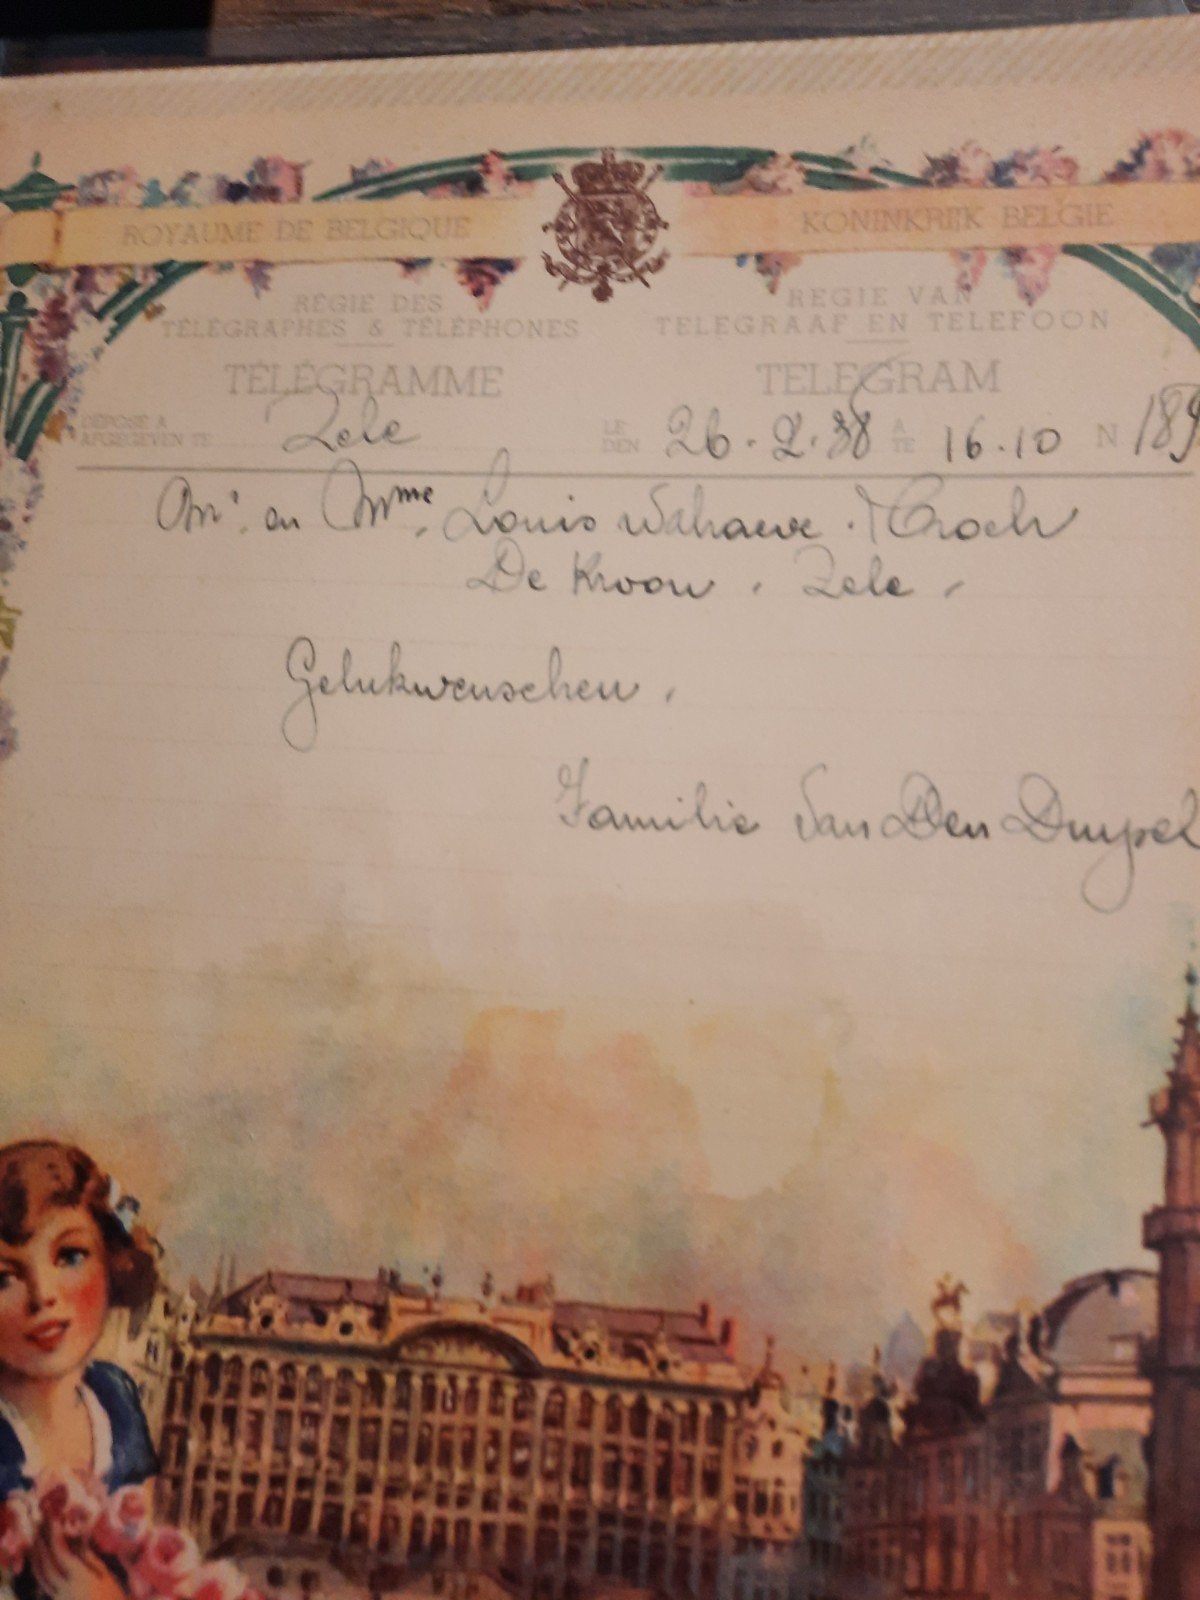 ROYAUME DE BELGIQUE KONINKRIJK BELGIE
RÉGIE DES REGIE VAN
TÉLÉGRAPHES & TÉLÉPHONES TELEGRAAF EN TELEFOON
TÉLÉGRAMME TELEGRAM
DÉPOSÉ A LE A
AFGEGEVEN TE Zele DEN 26.2.38 TE 16.10 N 189
Mr. en Mme. Louis
De Kroon, Zele,
Gelukwenschen,
Familie Van Den